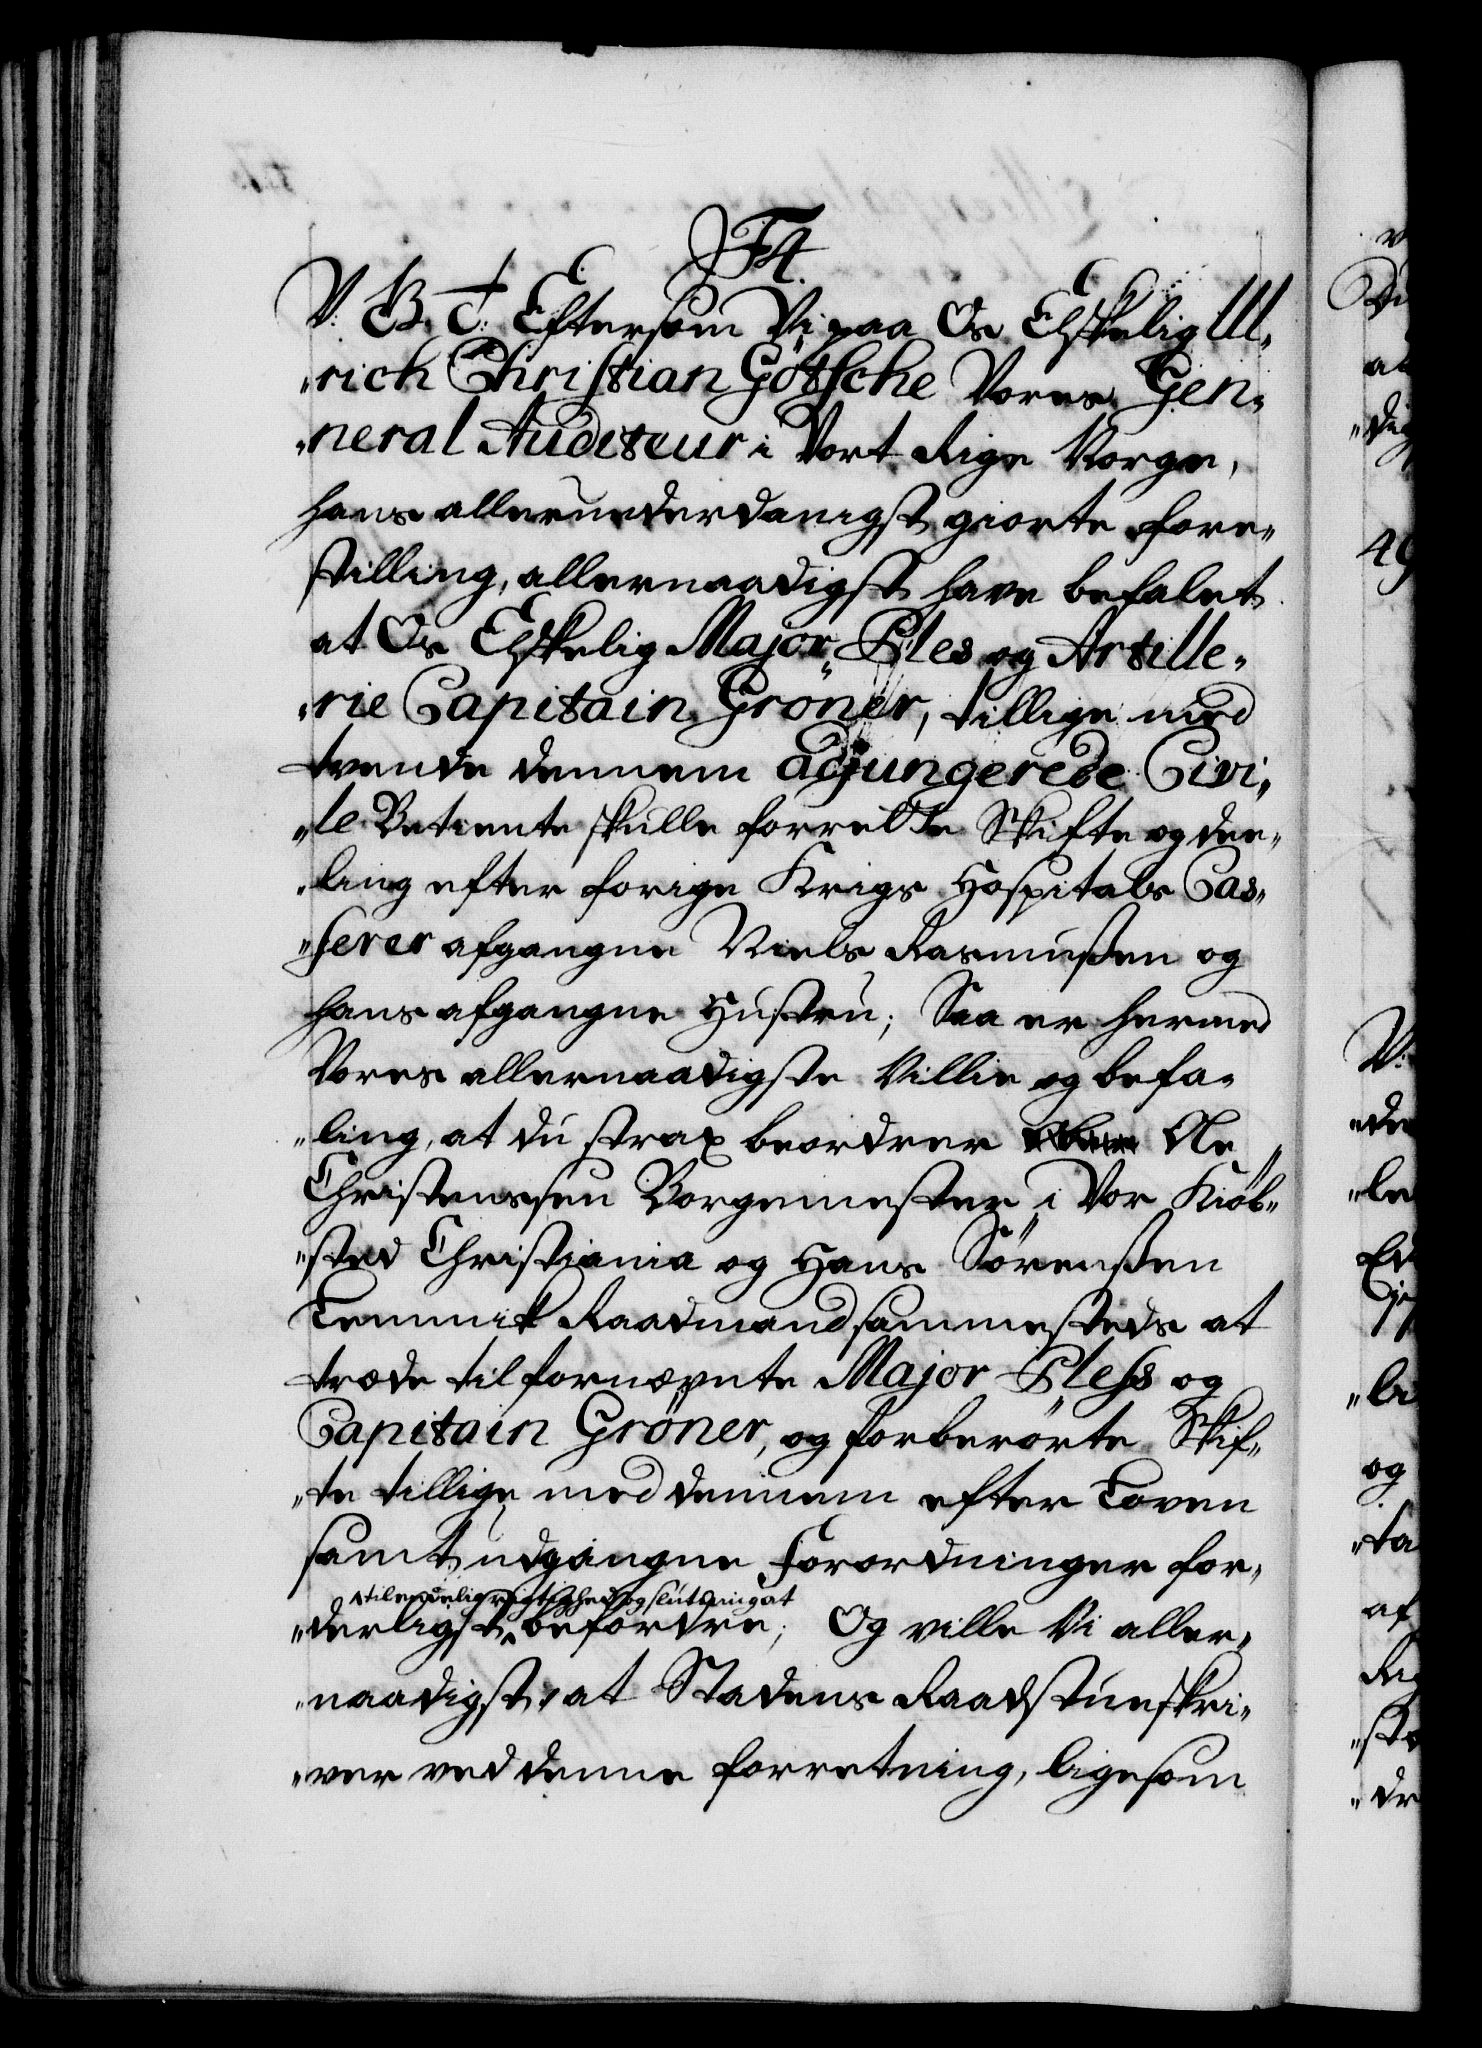 F4.
V. B. T. Eftersom Vi paa Os Elskelig Ul„
„rich Christian Götsche Vores Gen„
„neral Auditeur i Vort Rige Norge,
hans allerunderdanigst giorte fore„
stilling, allernaadigst have befalet
at Os Elskelig Major Ples og Artille„
„rie Capitain Gröner, tillige med
tvende dennem adjungerede Civi„
„le Betiente skulle forrette Skifte og dee„
„ling efter forige Krigs Hospitals Cas„
„serer afgangne Niels Rasmusßen og
hans afgangne Hustru; Saa er hermed
Vores allernaadigste Villie og befa„
„ling, at du strax beordrer Ole
Christenssen Borgemester i Vor Kiöb„
„sted Christiania og Hans Sörensßen
Lemmik Raadmand sammesteds at
træde til fornæfnte Major Pless og
Capitain Gröner, og forberörte Skif„
„te tillige med dennem efter Loven
samt udgangne Forordninger for„
til endelig rigtighed og slutning at
„derligst befordre; Og ville Vi aller„
„naadigst, at Stadens Raadstueskri„
„ver ved denne forretning, ligesom